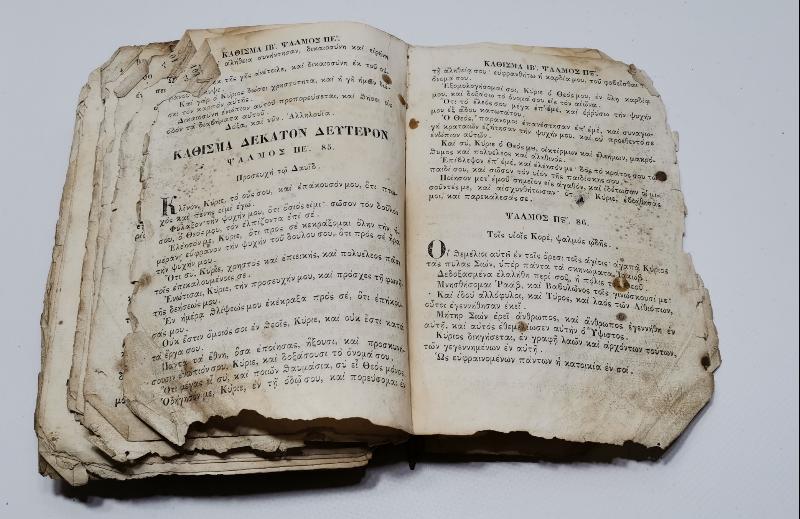 ΚΑΘΙΣΜΑ ΙΒ΄. ΨΑΛΜΟΣ ΠΕ΄.
ἀλήθεια συνήντησαν, δικαιοσύνη καὶ εἰρήνη
ἐκ τῆς γῆς ἀνέτειλε, καὶ δικαιοσύνη ἐκ τοῦ οὐ-
Καὶ γὰρ ὁ Κύριος δώσει χρηστότητα, καὶ ἡ γῆ ἡμῶν
σει τὸν καρπὸν αὐτῆς.
Δικαιοσύνη ἐνώπιον αὐτοῦ προπορεύσεται, καὶ θήσει εἰς
ὁδὸν τὰ διαβήματα αὐτοῦ.
Δόξα, καὶ νῦν. Ἀλληλούϊα.
ΚΑΘΙΣΜΑ ΔΕΚΑΤΟΝ ΔΕΥΤΕΡΟΝ
ΨΑΛΜΟΣ ΠΕ. 85.
Προσευχὴ τῷ Δαυΐδ.
Κλῖνον, Κύριε, τὸ οὖς σου, καὶ ἐπάκουσόν μου, ὅτι πτω-
χὸς καὶ πένης εἰμὶ ἐγώ.
Φύλαξον τὴν ψυχήν μου, ὅτι ὅσιός εἰμι· σῶσον τὸν δοῦλόν
σου, ὁ Θεός μου, τὸν ἐλπίζοντα ἐπὶ σέ.
Ἐλέησόν με, Κύριε, ὅτι πρὸς σὲ κεκράξομαι ὅλην τὴν ἡ-
μέραν· εὔφρανον τὴν ψυχὴν τοῦ δούλου σου, ὅτι πρὸς σὲ ἦρα
τὴν ψυχήν μου.
Ὅτι σύ, Κύριε, χρηστὸς καὶ ἐπιεικής, καὶ πολυέλεος πᾶσι
τοῖς ἐπικαλουμένοις σε.
Ἐνώτισαι, Κύριε, τὴν προσευχήν μου, καὶ πρόσχες τῇ φωνῇ
τῆς δεήσεώς μου.
Ἐν ἡμέρᾳ θλίψεώς μου ἐκέκραξα πρὸς σέ, ὅτι ἐπήκου-
σάς μου.
Οὐκ ἔστιν ὅμοιός σοι ἐν θεοῖς, Κύριε, καὶ οὐκ ἔστι κατὰ
τὰ ἔργα σου.
Πάντα τὰ ἔθνη, ὅσα ἐποίησας, ἥξουσι, καὶ προσκυνή-
σουσιν ἐνώπιόν σου, Κύριε, καὶ δοξάσουσι τὸ ὄνομά σου.
Ὅτι μέγας εἶ σύ, καὶ ποιῶν θαυμάσια, σὺ εἶ Θεὸς μόνος.
Ὁδήγησόν με, Κύριε, ἐν τῇ ὁδῷ σου, καὶ πορεύσομαι ἐν
ΚΑΘΙΣΜΑ ΙΒ΄. ΨΑΛΜΟΣ ΠϚ΄.
τῇ ἀληθείᾳ σου· εὐφρανθήτω ἡ καρδία μου, τοῦ φοβεῖσθαι
ὄνομά σου.
Ἐξομολογήσομαί σοι, Κύριε ὁ Θεός μου, ἐν ὅλῃ καρδίᾳ
μου, καὶ δοξάσω τὸ ὄνομά σου εἰς τὸν αἰῶνα.
Ὅτι τὸ ἔλεός σου μέγα ἐπ' ἐμέ, καὶ ἐρρύσω τὴν ψυχήν
μου ἐξ ᾅδου κατωτάτου.
Ὁ Θεός, παράνομοι ἐπανέστησαν ἐπ' ἐμέ, καὶ συναγω-
γὴ κραταιῶν ἐζήτησαν τὴν ψυχήν μου, καὶ οὐ προέθεντό σε
ἐνώπιον αὐτῶν.
Καὶ σύ, Κύριε ὁ Θεός μου, οἰκτίρμων καὶ ἐλεήμων, μακρό-
θυμος καὶ πολυέλεος καὶ ἀληθινός.
Ἐπίβλεψον ἐπ' ἐμέ, καὶ ἐλέησόν με· δὸς τὸ κράτος σου τῷ
παιδί σου, καὶ σῶσον τὸν υἱὸν τῆς παιδίσκης σου.
Ποίησον μετ' ἐμοῦ σημεῖον εἰς ἀγαθόν, καὶ ἰδέτωσαν οἱ μι-
σοῦντές με, καὶ αἰσχυνθήτωσαν· ὅτι Κύριε, ἐβοήθησάς
μοι, καὶ παρεκάλεσάς με.
ΨΑΛΜΟΣ ΠϚ΄. 86.
Τοῖς υἱοῖς Κορέ, ψαλμὸς ᾠδῆς.
Οἱ θεμέλιοι αὐτῆς ἐν τοῖς ὄρεσι τοῖς ἁγίοις· ἀγαπᾷ Κύριος
τὰς πύλας Σιών, ὑπὲρ πάντα τὰ σκηνώματα Ἰακώβ.
Δεδοξασμένα ἐλαλήθη περὶ σοῦ, ἡ πόλις τοῦ Θεοῦ.
Μνησθήσομαι Ῥαάβ, καὶ Βαβυλῶνος τοῖς γινώσκουσί με·
Καὶ ἰδοὺ ἀλλόφυλοι, καὶ Τύρος, καὶ λαὸς τῶν Αἰθιόπων,
οὗτοι ἐγεννήθησαν ἐκεῖ.
Μήτηρ Σιὼν ἐρεῖ ἄνθρωπος, καὶ ἄνθρωπος ἐγεννήθη ἐν
αὐτῇ, καὶ αὐτὸς ἐθεμελίωσεν αὐτὴν ὁ Ὕψιστος.
Κύριος διηγήσεται, ἐν γραφῇ λαῶν καὶ ἀρχόντων τούτων,
τῶν γεγεννημένων ἐν αὐτῇ.
Ὡς εὐφραινομένων πάντων ἡ κατοικία ἐν σοί.